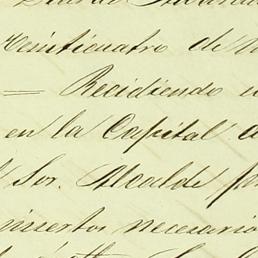 Veinticuatro de
= Recidiendo
en la Capital
Sor. Alcalde
insertos necesario